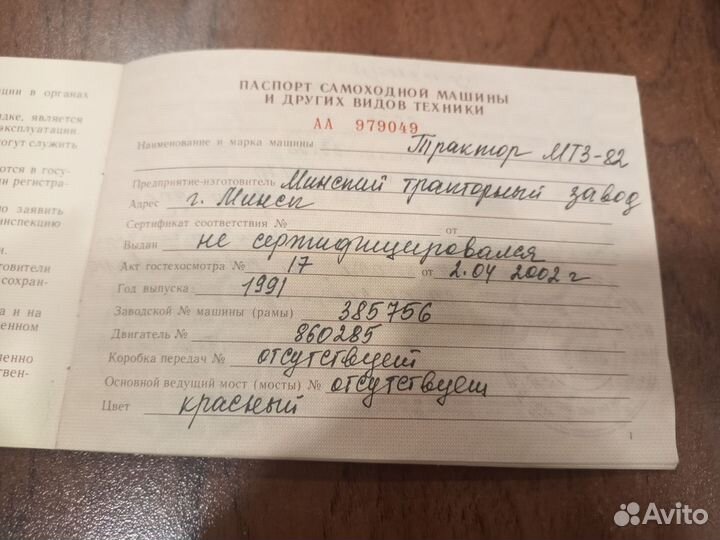 ции в органах
дке, является
эксплуатации
могут служить
ются в госу-
и регистра-
но заявить
инспекцию
и.
товители
сохран-
а и на
енном
ченно
ствен-
ПАСПОРТ САМОХОДНОЙ МАШИНЫ
И ДРУГИХ ВИДОВ ТЕХНИКИ
АА 979049
Наименование и марка машины Трактор МТЗ-82
Предприятие-изготовитель Минский тракторный завод
Адрес г. Минск
Сертификат соответствия № от
Выдан не сертифицировался
Акт гостехосмотра № 17 от 2.04 2002 г
Год выпуска 1991
Заводской № машины (рамы) 385756
Двигатель № 860285
Коробка передач № отсутствует
Основной ведущий мост (мосты) № отсутствует
Цвет красный
1
Avito